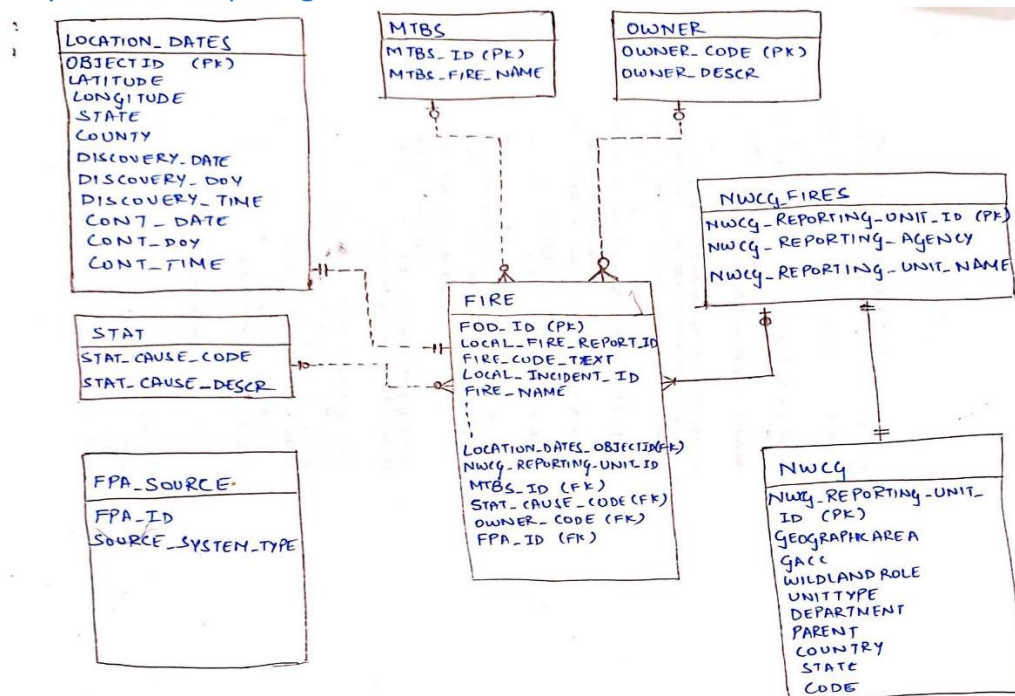 LOCATION_DATES
OBJECTID (PK)
LATITUDE
LONGITUDE
STATE
COUNTY
DISCOVERY_DATE
DISCOVERY_DOY
DISCOVERY_TIME
CONT_DATE
CONT_DOY
CONT_TIME
MTBS
MTBS_ID (PK)
MTBS_FIRE_NAME
OWNER
OWNER_CODE (PK)
OWNER_DESCR
NWCG_FIRES
NWCG_REPORTING_UNIT_ID (PK)
NWCG_REPORTING_AGENCY
NWCG_REPORTING_UNIT_NAME
STAT
STAT_CAUSE_CODE
STAT_CAUSE_DESCR
FIRE
FOD_ID (PK)
LOCAL_FIRE_REPORT_ID
FIRE_CODE_TEXT
LOCAL_INCIDENT_ID
FIRE_NAME
LOCATION_DATES_OBJECTID(FK)
NWCG_REPORTING_UNIT_ID
MTBS_ID (FK)
STAT_CAUSE_CODE (FK)
OWNER_CODE (FK)
FPA_ID (FK)
FPA_SOURCE
FPA_ID
SOURCE_SYSTEM_TYPE
NWCG
NWCG_REPORTING_UNIT_
ID (PK)
GEOGRAPHICAREA
GACC
WILDLAND ROLE
UNITTYPE
DEPARTMENT
PARENT
COUNTRY
STATE
CODE